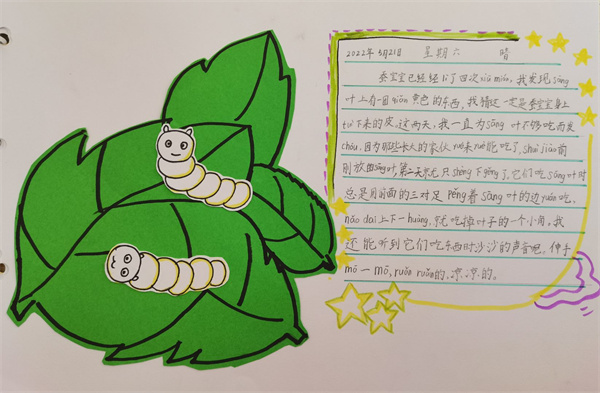 2022年5月21日 星期六 晴
蚕宝宝已经经历了四次xiū mián,我发现sāng
叶上有一团qiǎn黄色的东西,我猜这一定是蚕宝宝身上
tuì下来的皮。这两天,我一直为sāng叶不够吃而发
chóu,因为那些长大的家伙yuè来yuè能吃了,shuì jiào前
刚放的sāng叶,第二天就只shèng下gěng了。它们吃sāng叶时
总是用前面的三对足pěng着sāng叶的边yuán吃,
nǎo dai上下一huàng,就吃掉叶子的一个小角。我
还能听到它们吃东西时沙沙的声音呢,伸手
mō一mō,ruǎn ruǎn的,凉凉的。